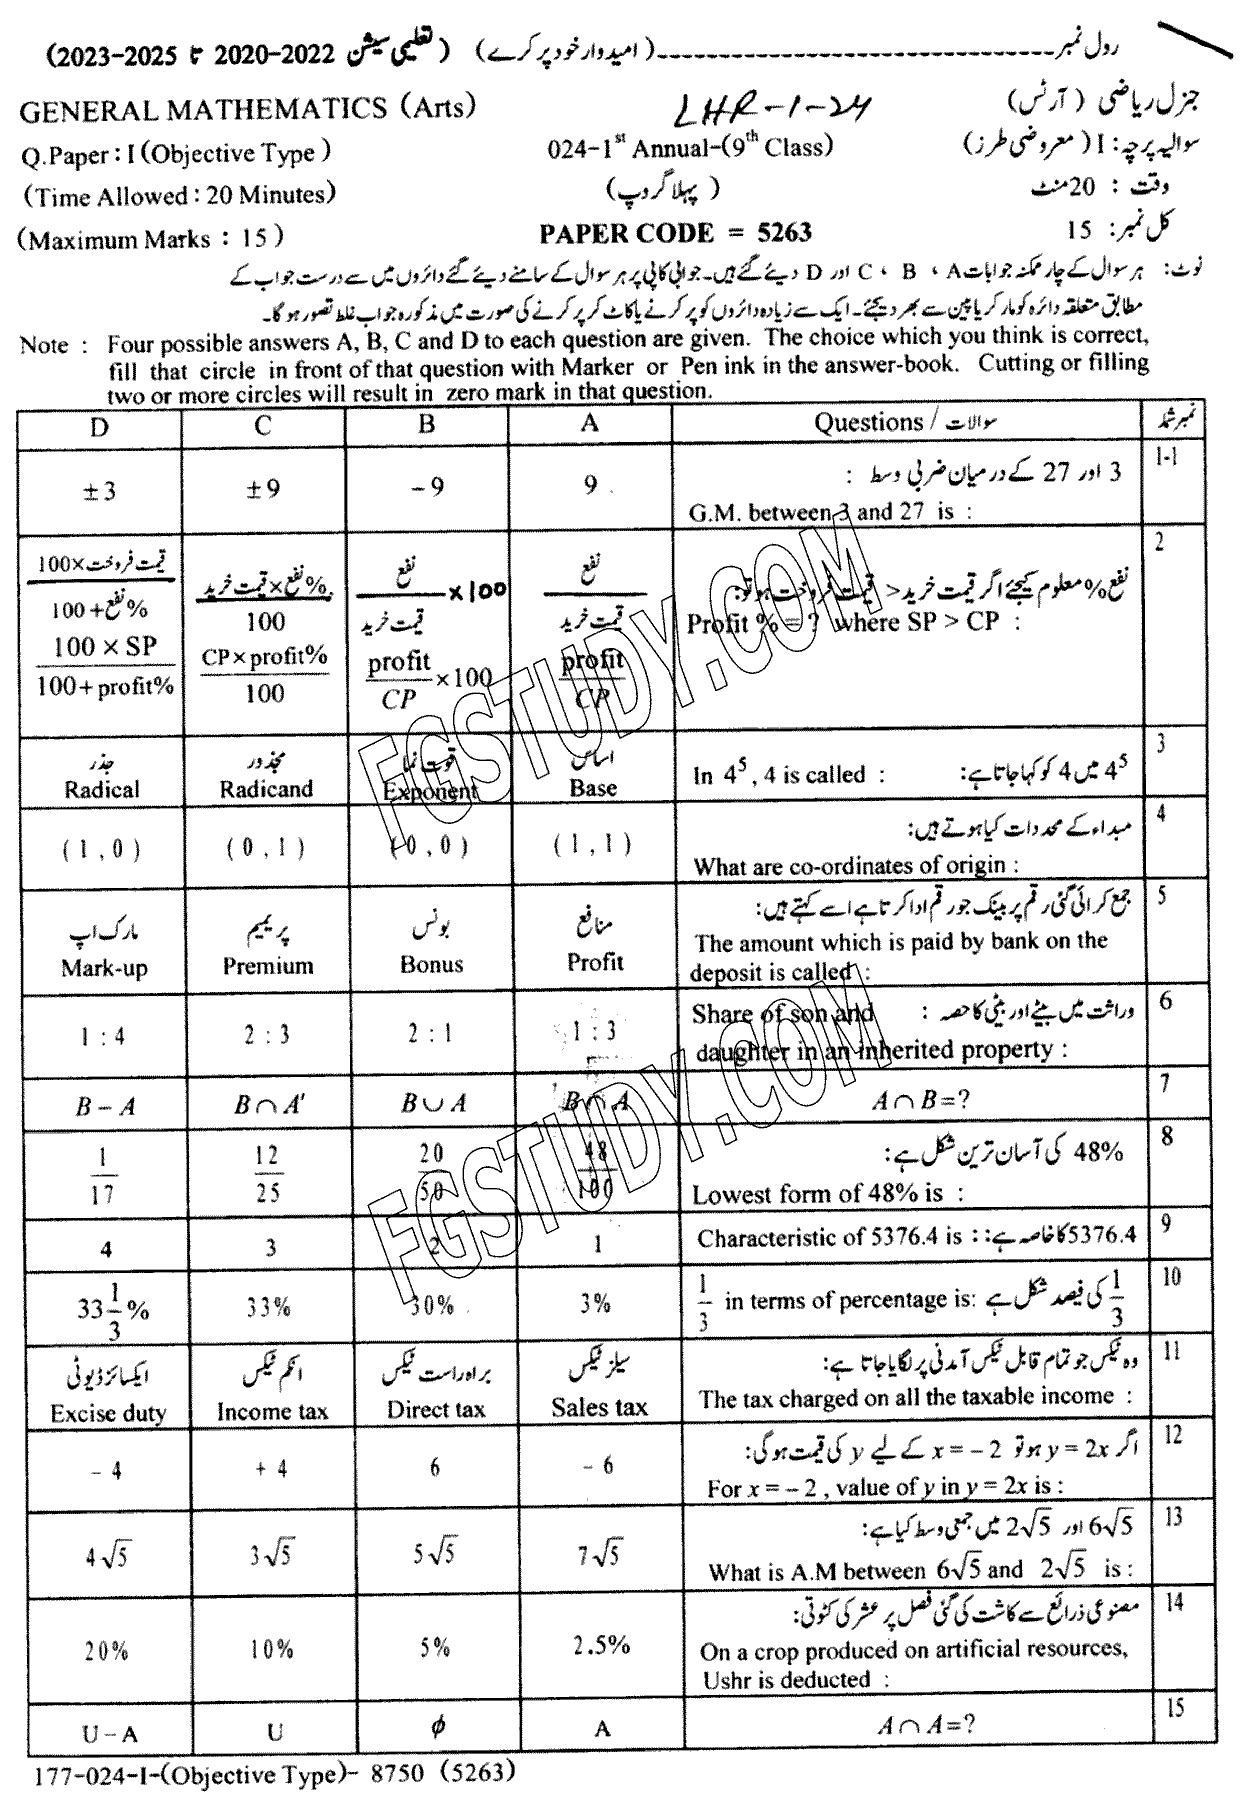 رول نمبر ------------------------ (امیدوار خود پر کرے) (تعلیمی سیشن 2020-2022 تا 2023-2025)
GENERAL MATHEMATICS (Arts) LHR-1-24 جنرل ریاضی (آرٹس)
Q.Paper : I (Objective Type) 024-1st Annual-(9th Class) سوالیہ پرچہ : I (معروضی طرز)
(Time Allowed : 20 Minutes) (پہلا گروپ) وقت : 20 منٹ
(Maximum Marks : 15) PAPER CODE = 5263 کل نمبر : 15
نوٹ : ہر سوال کے چار ممکنہ جوابات A ، B ، C اور D دیئے گئے ہیں۔ جوابی کاپی پر ہر سوال کے سامنے دیئے گئے دائروں میں سے درست جواب کے
مطابق متعلقہ دائرہ کو مارکر یا پین سے بھر دیجئے۔ ایک سے زیادہ دائروں کو پر کرنے یا کاٹ کر پر کرنے کی صورت میں مذکورہ جواب غلط تصور ہو گا۔
Note : Four possible answers A, B, C and D to each question are given. The choice which you think is correct,
fill that circle in front of that question with Marker or Pen ink in the answer-book. Cutting or filling
two or more circles will result in zero mark in that question.
D C B A Questions / سوالات نمبر شمار
1-1 3 اور 27 کے درمیان ضربی وسط :
±3 ±9 -9 9 G.M. between 3 and 27 is :
2 نفع% معلوم کیجئے اگر قیمت خرید < قیمت فروخت ہو تو:
قیمت فروخت×100 / 100+نفع% نفع%×قیمت خرید / 100 نفع / قیمت خرید ×100 نفع / قیمت خرید
100 × SP / 100+profit% CP×profit% / 100 profit / CP ×100 profit / CP Profit % = ? where SP > CP :
جذر مجذور قوت نما اساس 4⁵ میں 4 کو کہا جاتا ہے: 3
Radical Radicand Exponent Base In 4⁵ , 4 is called :
مبداء کے محددات کیا ہوتے ہیں: 4
(1 , 0) (0 , 1) (0 , 0) (1 , 1) What are co-ordinates of origin :
جمع کرائی گئی رقم پر بینک جو رقم ادا کرتا ہے اسے کہتے ہیں: 5
مارک اپ پریمیم بونس منافع
Mark-up Premium Bonus Profit The amount which is paid by bank on the
deposit is called :
وراثت میں بیٹے اور بیٹی کا حصہ : 6
1 : 4 2 : 3 2 : 1 1 : 3 Share of son and
daughter in an inherited property :
B – A B∩A′ B∪A B∩A A∩B=? 7
48% کی آسان ترین شکل ہے: 8
1/17 12/25 20/50 48/100 Lowest form of 48% is :
4 3 2 1 Characteristic of 5376.4 is : 5376.4 کا خاصہ ہے: 9
33 1/3 % 33% 30% 3% 1/3 in terms of percentage is: 1/3 کی فیصد شکل ہے 10
وہ ٹیکس جو تمام قابل ٹیکس آمدنی پر لگایا جاتا ہے: 11
ایکسائز ڈیوٹی انکم ٹیکس براہ راست ٹیکس سیلز ٹیکس
Excise duty Income tax Direct tax Sales tax The tax charged on all the taxable income :
اگر y = 2x ہو تو x = – 2 کے لیے y کی قیمت ہو گی: 12
– 4 + 4 6 – 6 For x = – 2 , value of y in y = 2x is :
6√5 اور 2√5 میں جمعی وسط کیا ہے: 13
4√5 3√5 5√5 7√5 What is A.M between 6√5 and 2√5 is :
مصنوعی ذرائع سے کاشت کی گئی فصل پر عشر کی کٹوتی: 14
20% 10% 5% 2.5% On a crop produced on artificial resources,
Ushr is deducted :
U – A U ϕ A A∩A=? 15
177-024-I-(Objective Type)- 8750 (5263)
FGSTUDY.COM
FGSTUDY.COM